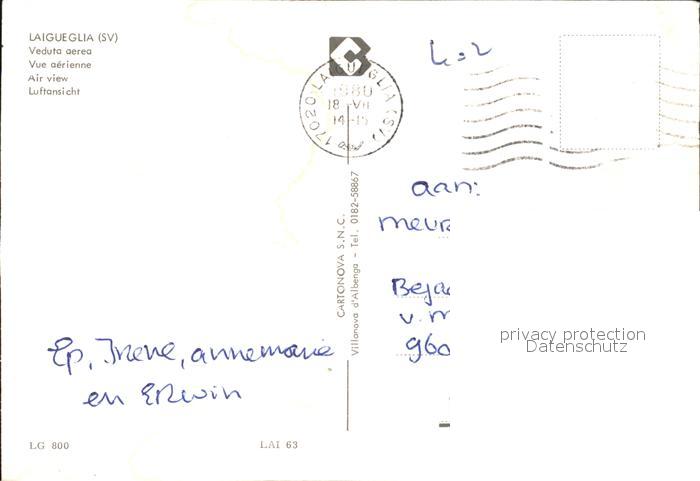 LAIGUEGLIA (SV)
Veduta aerea
Vue aérienne
Air view
Luftansicht
17020 LAIGUEGLIA (SV)
1980
18-VII
CARTONOVA S.N.C.
Villanova d'Albenga – Tel. 0182-58867
aan:
mevr
Beja
v.m
960
privacy protection
Datenschutz
Ep, Irene, annemarie
en Erwin
LG 800
LAI 63